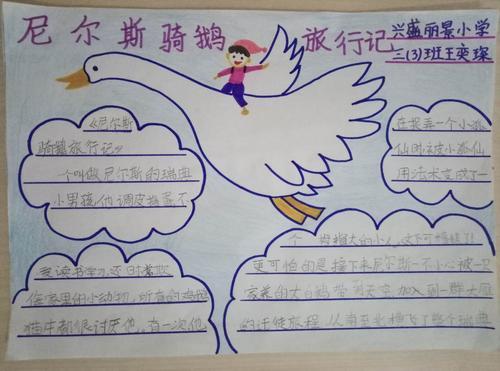 尼尔斯骑鹅旅行记
兴盛丽景小学
三(3)班王奕琛
《尼尔斯
骑鹅旅行记》
一个叫做尼尔斯的瑞典
小男孩,他调皮捣蛋不
爱读书学习,还时常欺
侮家里的小动物,所有的鸡鸭
猫牛都很讨厌他。有一次他
在捉弄一个小狐
仙时被小狐仙
用法术变成了一
个 拇指大的小人,这下可
更可怕的是接下来尼尔斯一不小心被一只
家养的大白鹅带到天空,加入到一群大雁
的迁徙旅程,从南至北横飞了整个瑞典